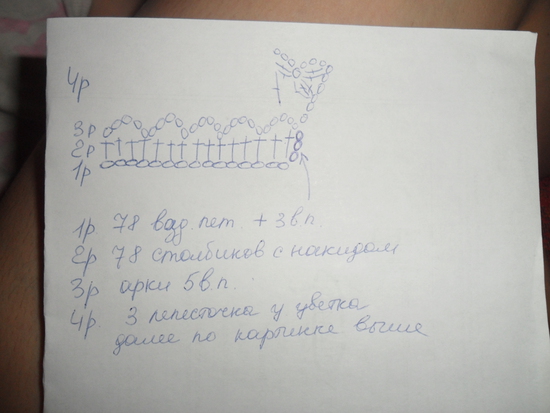 4р
3р
2р
1р
1р 78 возд. пет. + 3 в.п.
2р 78 столбиков с накидом
3р арки 5 в.п.
4р. 3 лепесточка у цветка
далее по картинке выше